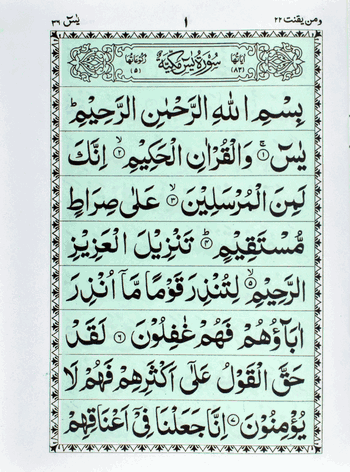 ومن يقنت ٢٢
١
يٰسٓ ٣٦
اٰيَاتُهَا (٨٣) سُوْرَةُ يٰسٓ مَكِّيَّةٌ رُكُوْعَاتُهَا (٥)
بِسْمِ اللهِ الرَّحْمٰنِ الرَّحِيْمِ
يٰسٓ ۚ ﴿١﴾ وَالْقُرْاٰنِ الْحَكِيْمِ ۙ ﴿٢﴾ اِنَّكَ
لَمِنَ الْمُرْسَلِيْنَ ۙ ﴿٣﴾ عَلٰى صِرَاطٍ
مُّسْتَقِيْمٍ ؕ ﴿٤﴾ تَنْزِيْلَ الْعَزِيْزِ
الرَّحِيْمِ ۙ ﴿٥﴾ لِتُنْذِرَ قَوْمًا مَّاۤ اُنْذِرَ
اٰبَآؤُهُمْ فَهُمْ غٰفِلُوْنَ ﴿٦﴾ لَقَدْ
حَقَّ الْقَوْلُ عَلٰۤى اَكْثَرِهِمْ فَهُمْ لَا
يُؤْمِنُوْنَ ﴿٧﴾ اِنَّا جَعَلْنَا فِيْۤ اَعْنَاقِهِمْ